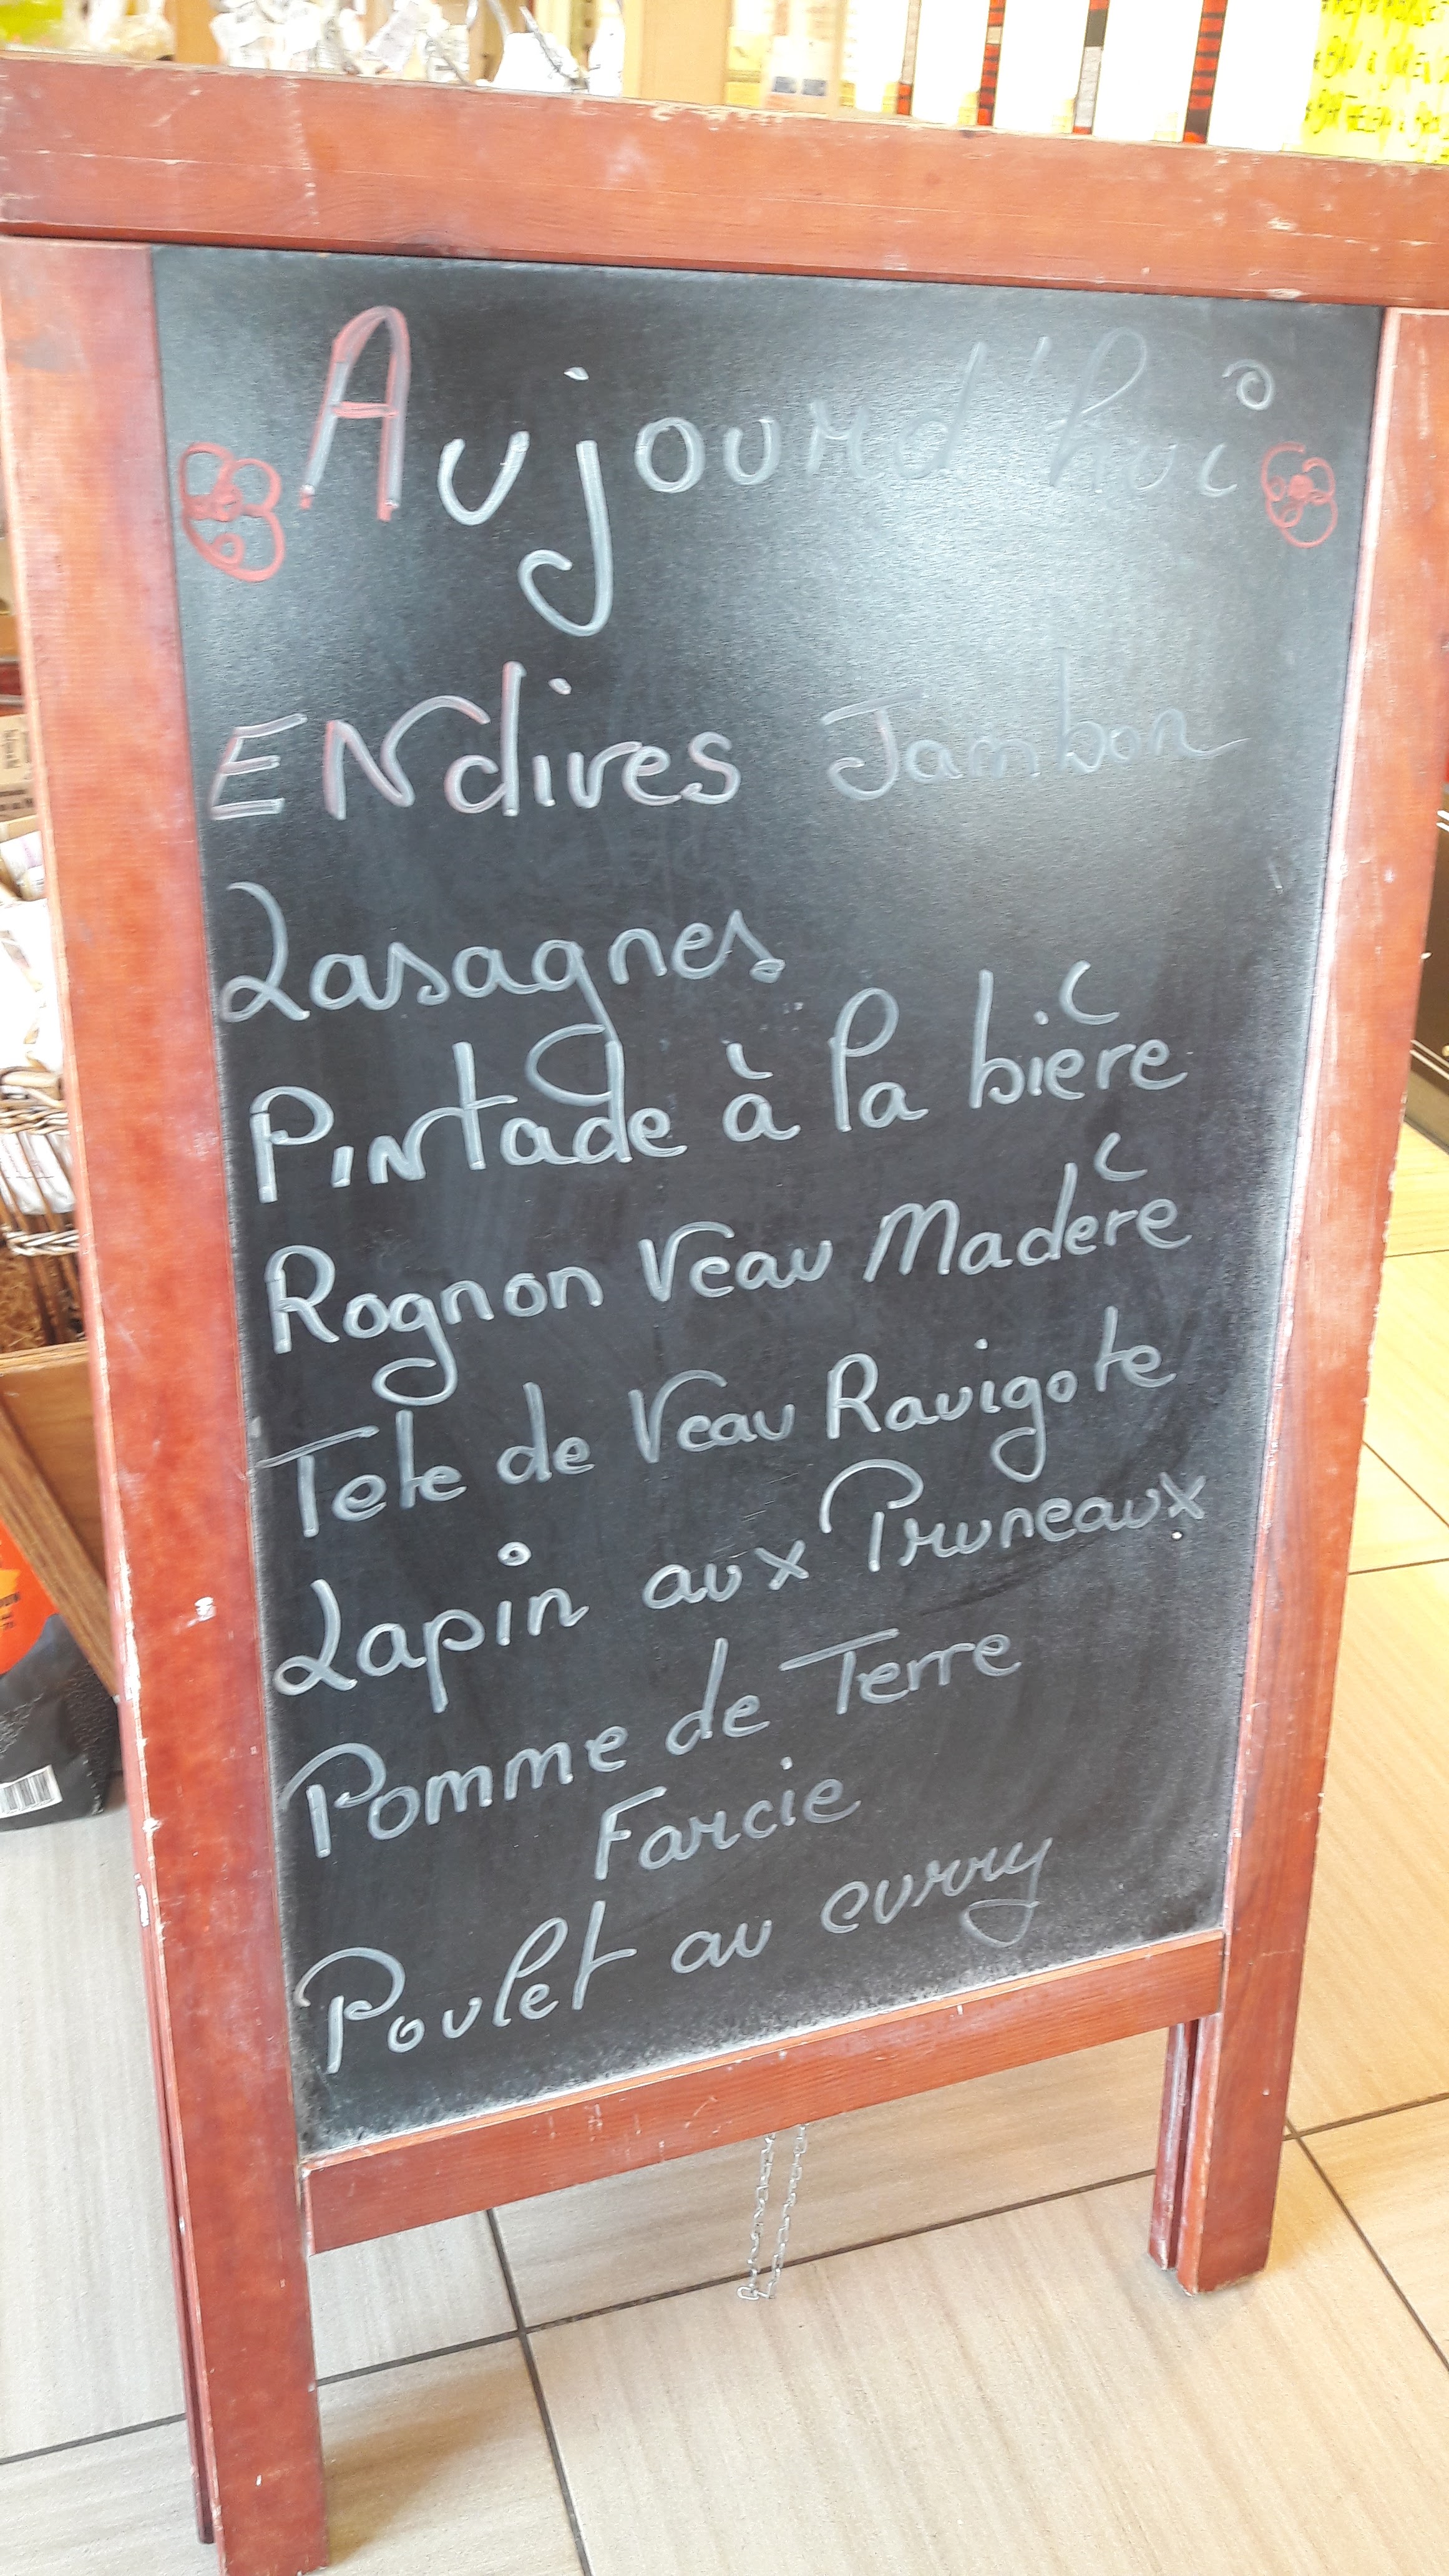 Aujourd'hui
ENdives Jambon
Lasagnes
Pintade à la bière
Rognon Veau Madère
Tete de Veau Ravigote
Lapin aux Pruneaux
Pomme de Terre
Farcie
Poulet au curry